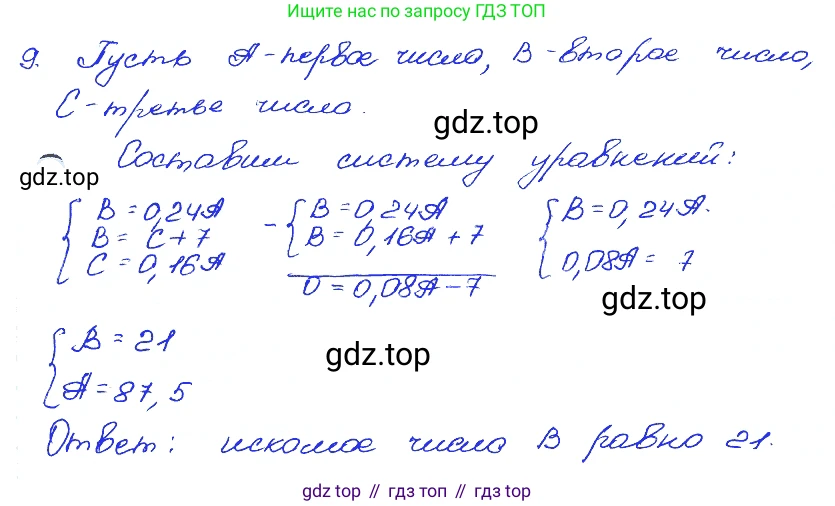 Ищите нас по запросу ГДЗ ТОП
9. Пусть A - первое число, B - второе число,
C - третье число.
gdz.top
Составим систему уравнений:
gdz.top
B = 0,24A
B = C + 7
C = 0,16A
- B = 0,24A
B = 0,16A + 7
0 = 0,08A - 7
B = 0,24A.
0,08A = 7
gdz.top
B = 21
A = 87,5
gdz.top
Ответ: искомое число B равно 21.
gdz top // гдз топ // гдз top